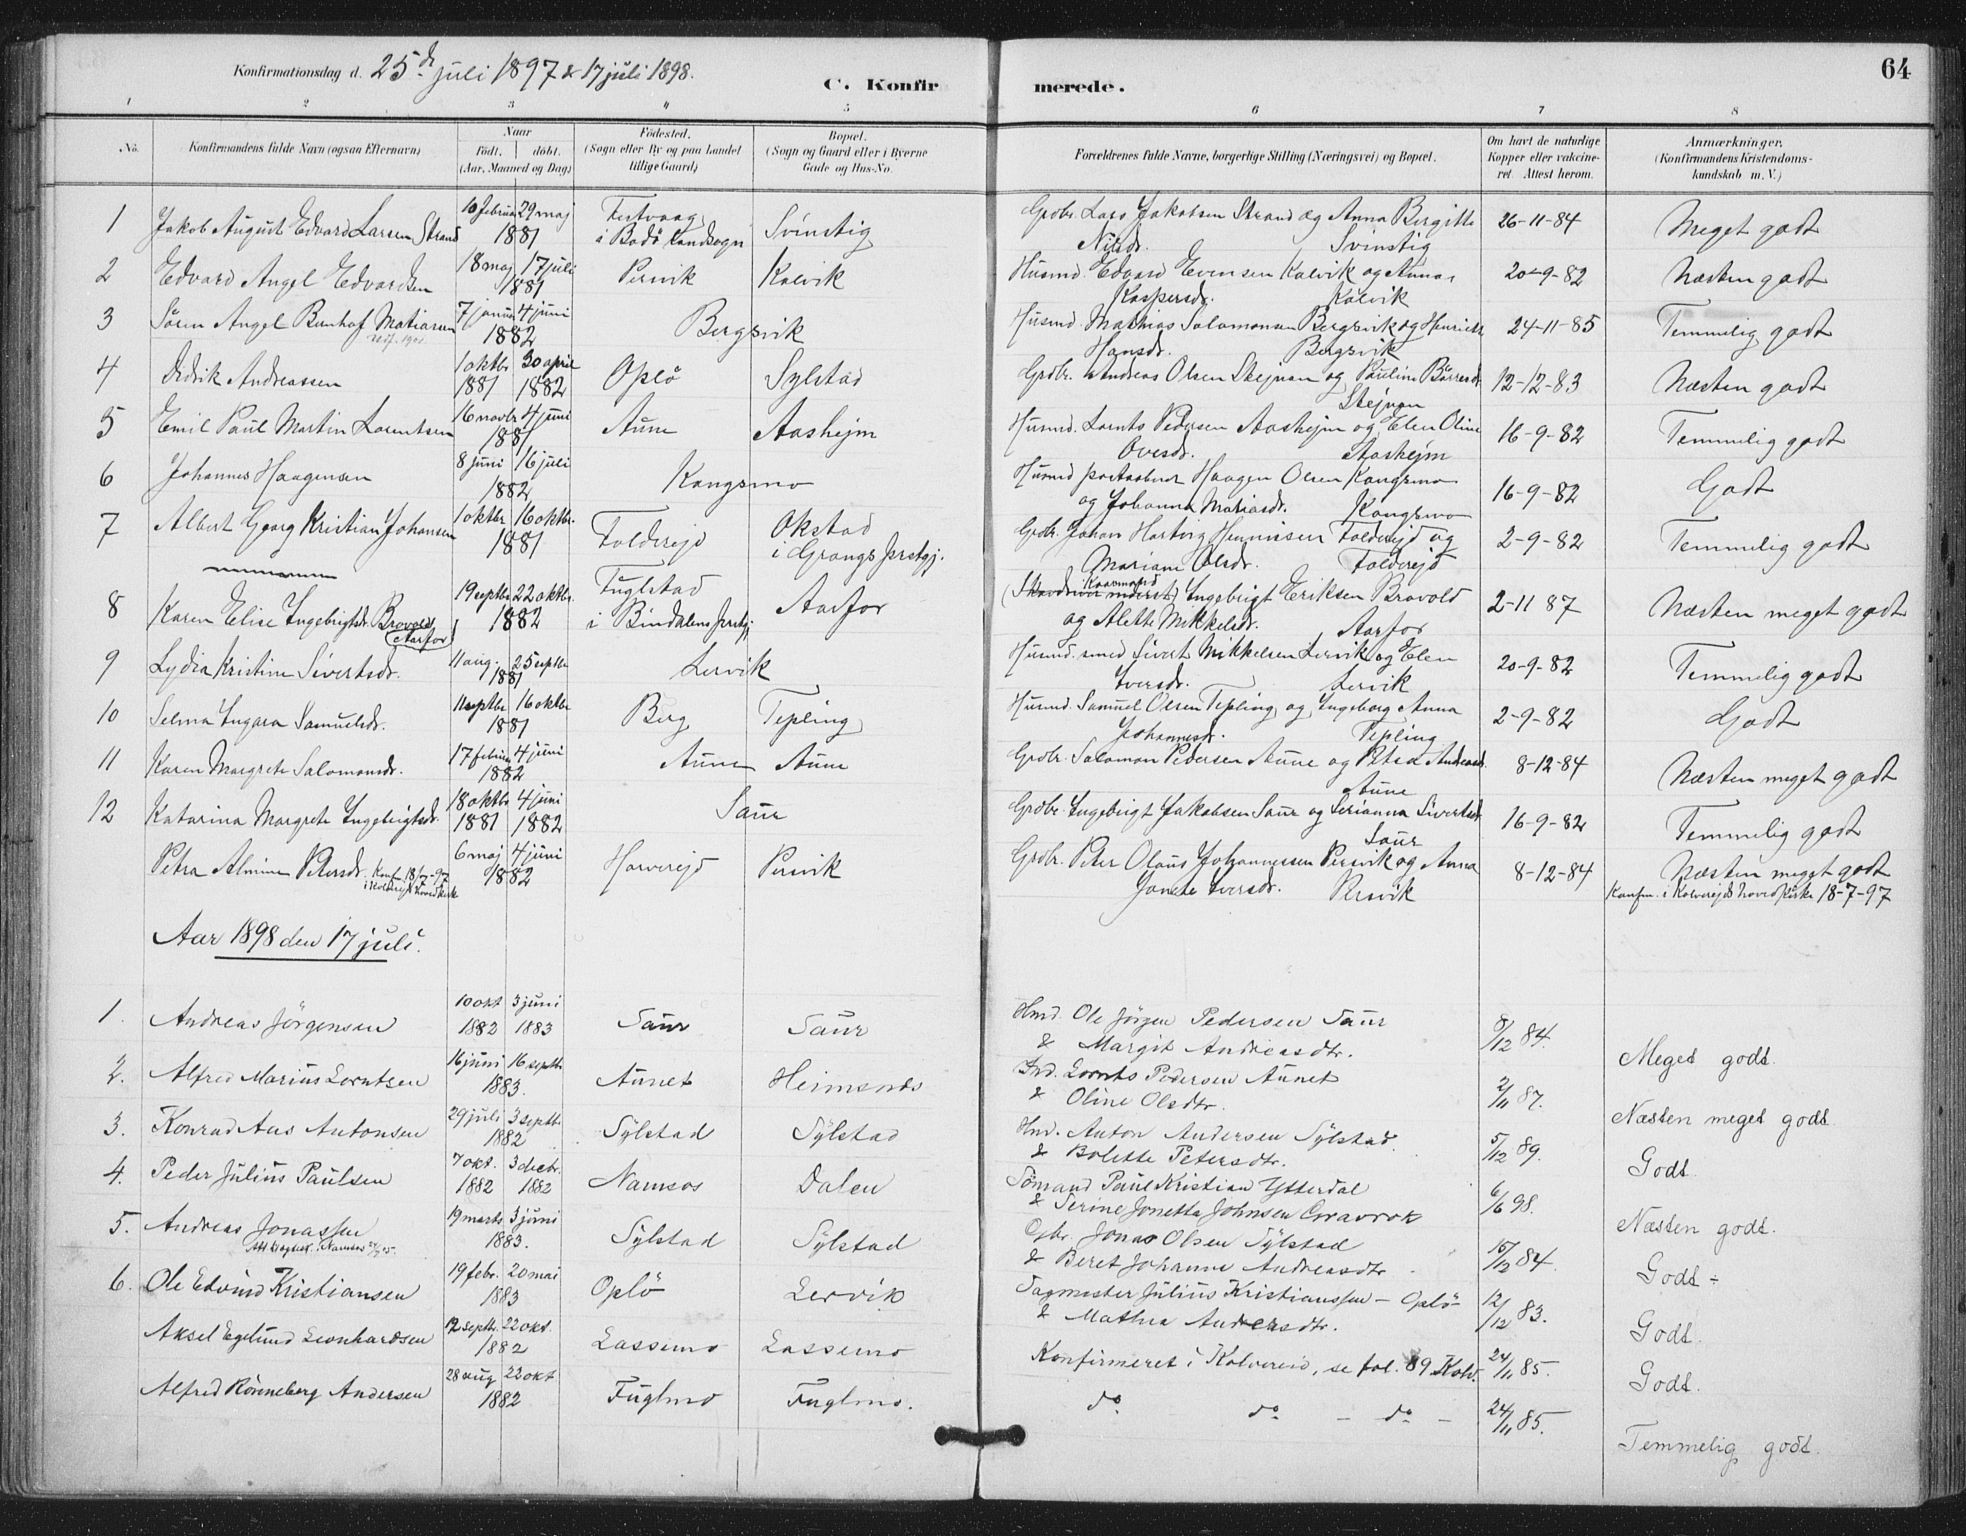 64
Konfirmationsdag d. 25de juli 1897 & 17 juli 1898.
C. Konfirmerede.
1 2 3 4 5 6 7 8
No.
Konfirmandens fulde Navn (ogsaa Efternavn)
Naar
Födt. döbt.
(Aar, Maaned og Dag)
Födested.
(Sogn eller By og paa Landet
tillige Gaard)
Bopæl.
(Sogn og Gaard eller i Byerne
Gade og Hus-No.
Forældrenes fulde Navne, borgerlige Stilling (Næringsvei) og Bopæl.
Om havt de naturlige
Kopper eller vakcine-
ret. Attest herom.
Anmærkninger.
(Konfirmandens Kristendoms-
kundskab m. V.)
1 Jakob August Edvard Larsen Strand 10 februar 29 maj 1881 Festvaag i Bodö landsogn Svinstig Grdbr. Lars Jakobsen Strand og Anna Bergitte Nilsdr. Svinstig 26-11-84 Meget godt
2 Edvard Angel Edvardsen 18 maj 17 juli 1881 Persvik Kalvik Husmd. Edvard Evensen Kalvik og Anna Kaspersdr. Kalvik 20-9-82 Næsten godt
3 Sören Angel Matiasen 7 januar 4 juni 1882 Bergsvik Husmd. Mathias Salomonsen Bergsvik og Henrikke Hansdr. Bergsvik 24-11-85 Temmelig godt
4 Didrik Andreassen 1 oktbr 1881 30 april 1882 Oplö Sylstad Grdbr. Andreas Olsen Skejnan og Pauline Börresdr. Skejnan 12-12-83 Næsten godt
5 Emil Paul Martin Lorentsen 16 novbr 4 juni 1881 Aune Aashejm Husmd. Lornts Pedersen Aashejm og Elen Oline Ovesdr. Aashejm 16-9-82 Temmelig godt
6 Johannes Haagensen 8 juni 16 juli 1882 Kongsmo Husmd Haagen Olsen Kongsmo og Johanna Matiasdr. Kongsmo 16-9-82 Godt
7 Albert Georg Kristian Johansen 1 oktbr 16 oktbr. 1881 Folderejd Okstad i Grongs prstgj. Grdbr. Johan Hartvig Henniksen Folderejd og Mariane Olsdr. Folderejd 2-9-82 Temmelig godt
8 Karen Elise Ingebrigtsdr. Bravold (Aarfor) 19 septbr 22 oktbr. 1882 Fuglstad i Bindalens prstgj. Aarfor Ingebrigt Eriksen Bravold og Alette Mikkelsdr. Aarfor 2-11 87 Næsten meget godt
9 Lydia Kristine Sivertsdr. 11 aug. 25 septbr 1881 Lervik Husmd. smed Sivert Mikkelsen Lervik og Elen Iversdr. Lervik 20-9-82 Temmelig godt
10 Selma Ingara Samuelsdr. 11 septbr 16 oktbr 1881 Berg Tepling Husmd. Samuel Olsen Tepling og Ingeborg Anna Johannesdr. Tepling 2-9-82 Godt
11 Karen Margrete Salomonsdr. 17 februar 4 juni 1882 Aune Aune Grdbr. Salomon Pedersen Aune og Petra Andreasdr. Aune 8-12-84 Næsten meget godt
12 Katarina Margrete Ingebrigtsdr. 18 oktbr 1881 4 juni 1882 Saur Grdbr. Ingebrigt Jakobsen Saur og Serianna Sivertsdr. Saur 16-9-82 Temmelig godt
Petra Almine Petersdr. Konf. 18/7-97 i Kolverejd hovedkirke 6 maj 4 juni 1882 Horverejd Persvik Grdbr. Peter Olaus Johannessen Persvik og Anna Janete Iversdr. Persvik 8-12-84 Næsten meget godt
Konfm. i Kolverejds hovedkirke 18-7-97
Aar 1898 den 17 juli.
1. Andreas Jörgensen 10 okt 1882 3 juni 1883 Saur Saur Hmd. Ole Jörgen Pedersen Saur & Margit Andreasdtr. 8/12 84. Meget godt.
2. Alfred Marius Lorntsen 16 juni 16 septb. 1883. Aunet Heimsnes Ind. Lornts Pedersen Aunet & Oline Olsdtr. 2/11 87. Næsten meget godt
3. Konrad Aus Antonsen 29 juli 3 septb. 1882 Sylstad Sylstad Hmd. Anton Andersen Sylstad. & Bolette Petersdtr. 5/12 89. Godt
4. Peder Julius Paulsen 7 okt. 1882 3 decbr. 1882 Namsos Dalen Sömand Paul Kristian Ytterdal & Serine Jonetta Johnsen Gravrok 6/6 98. Næsten godt.
5. Andreas Jonassen 19 marts 3 juni 1883. Sylstad Sylstad Gbr. Jonas Olsen Sylstad & Beret Johanne Andreasdtr 15/12 84. Godt -
6. Ole Edvind Kristiansen 19 febr. 20 mai 1883 Oplö Lervik Sagmester Julius Kristianssen - Oplö & Mathea Andersdtr. 12/12 83. Godt.
Aksel Egelund Leonhardsen 12 septb. 22 okt. 1882 Lassemo Lassemo Konfirmeret i Kolvereid, se fol. 89 Kolv. 24/11 85. Godt.
Alfred Rönneberg Andersen 28 aug 22 okt 1882 Fuglmo Fuglmo. do do - do - 24/11 85. Temmelig godt.